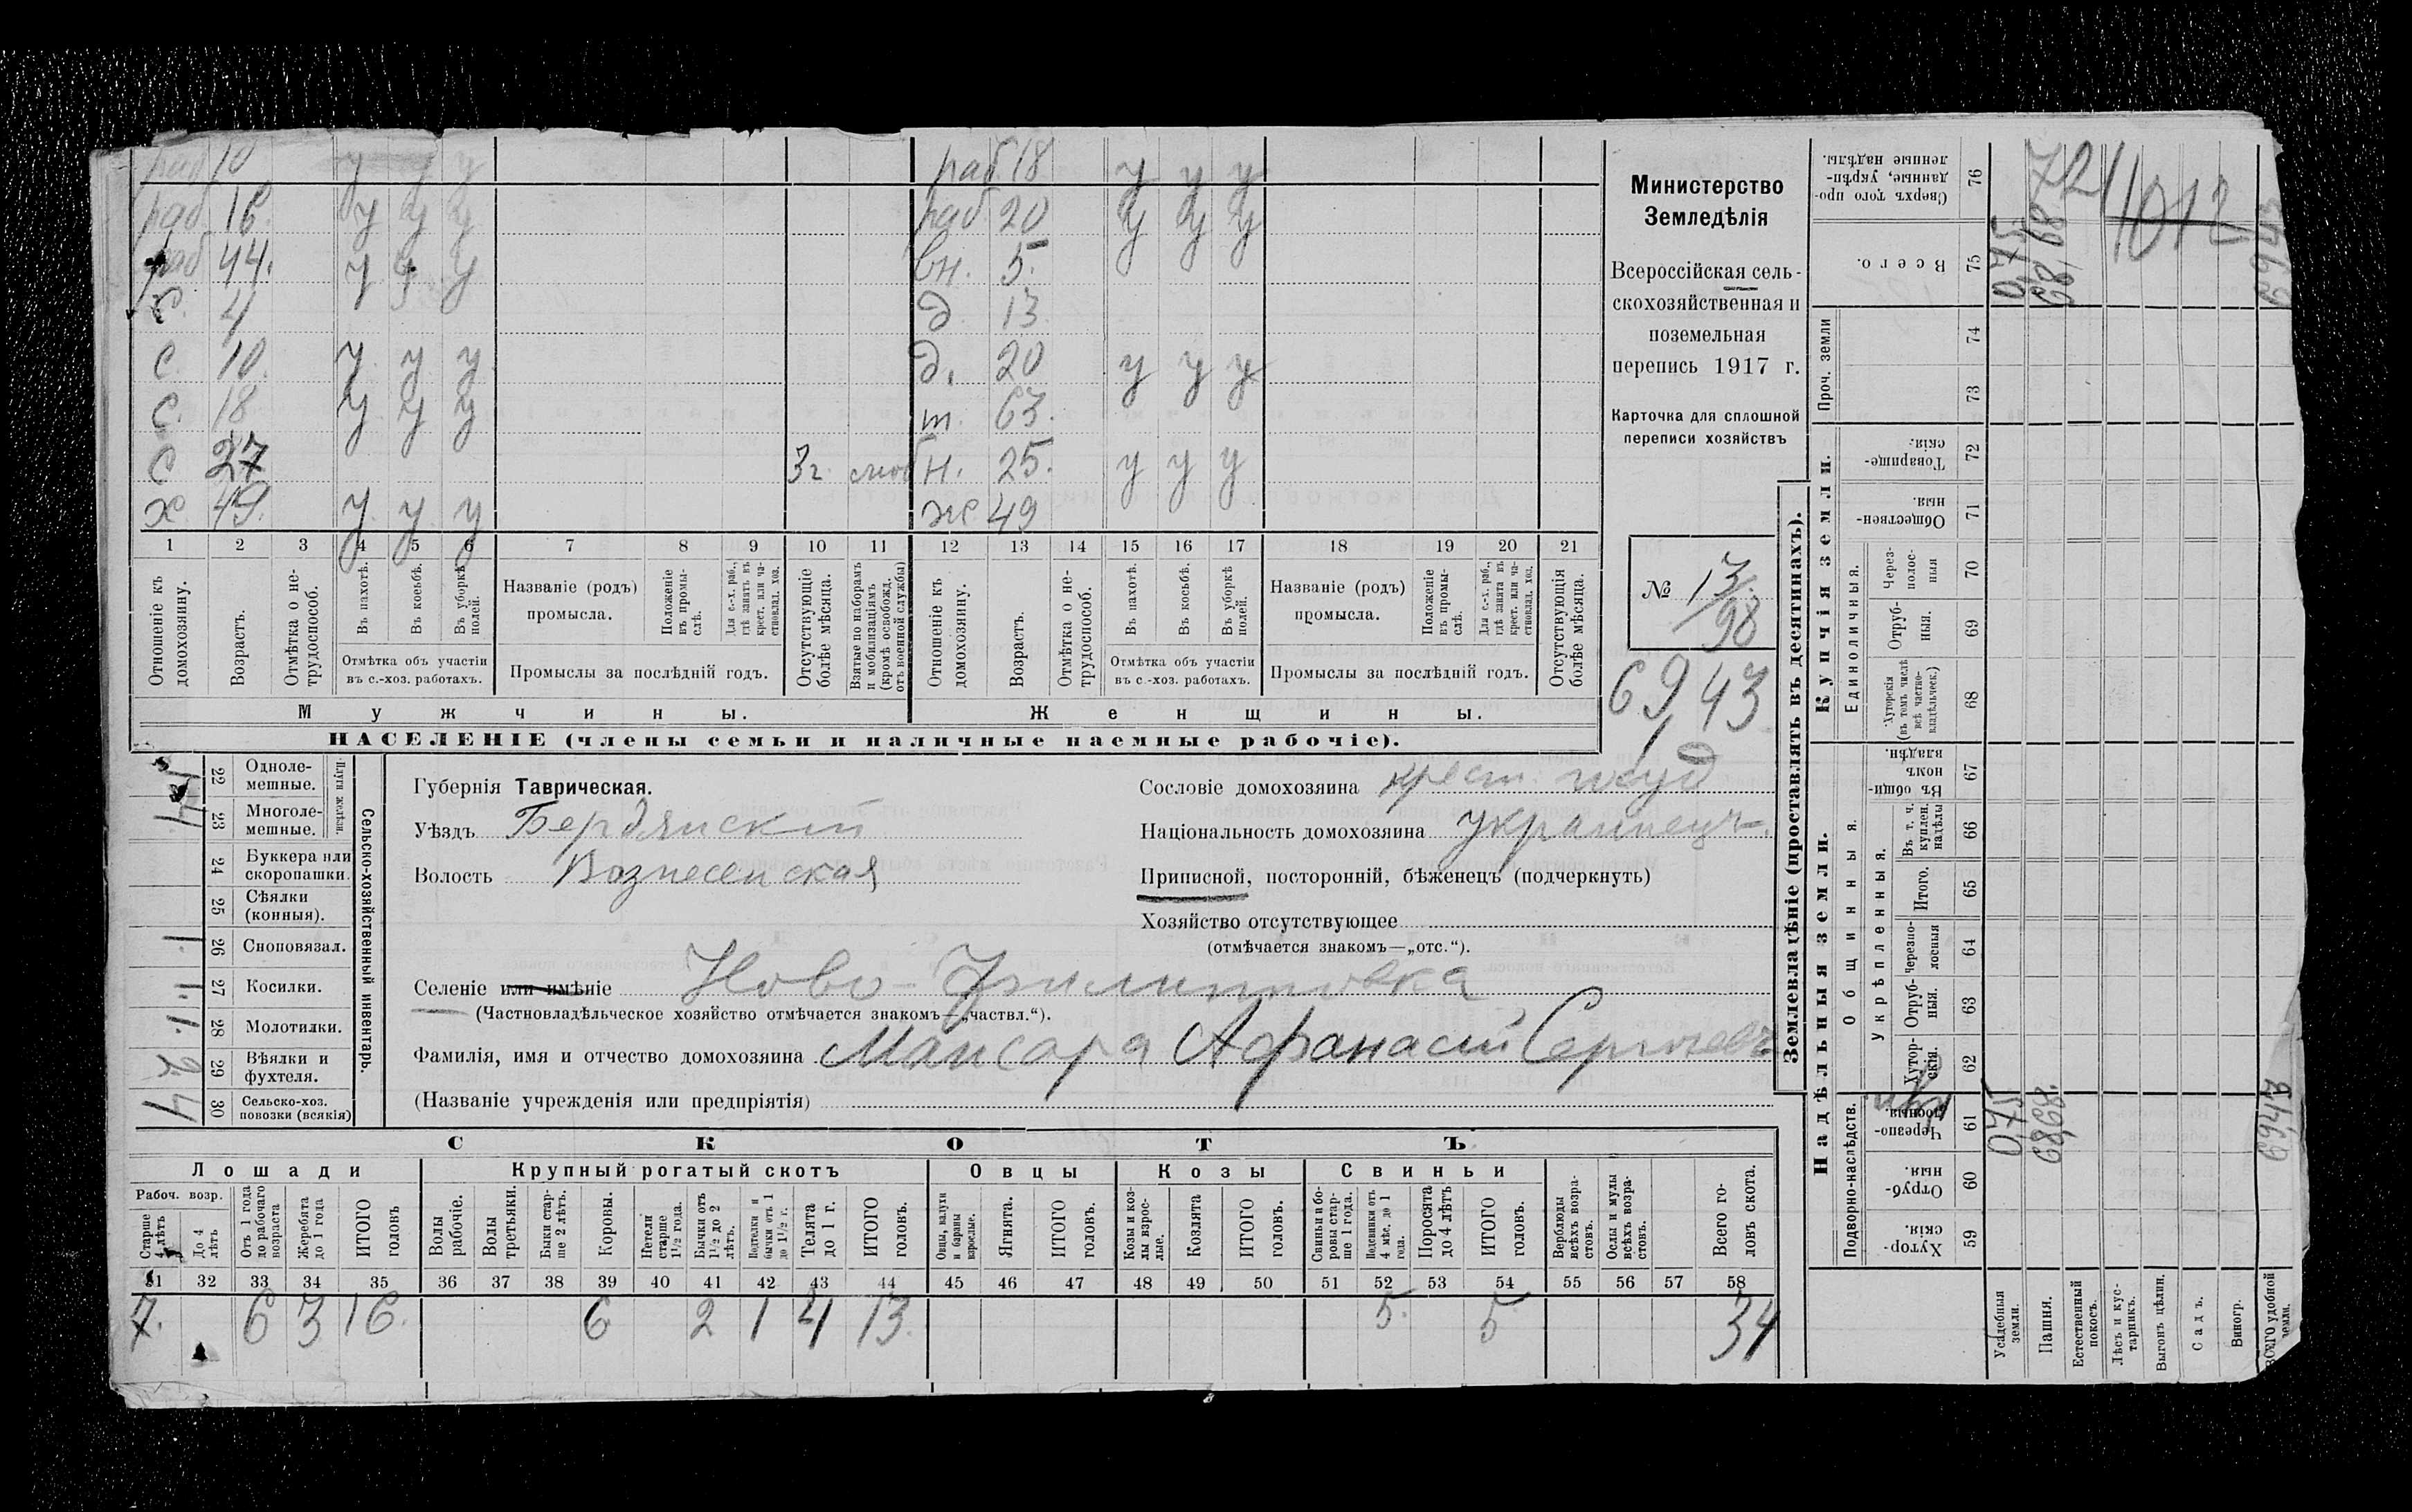 раб 10 у у у раб. 18 у у у
раб 16. у у у раб 20 у у у
раб 44. у у у вн. 5.
с. 4 д 13
с 10. у у у д. 20 у у у
с. 18 у у у т. 63.
с 27 3 г. моб н. 25. у у у
х. 49. у у у ж 49
1 2 3 4 5 6 7 8 9 10 11 12 13 14 15 16 17 18 19 20 21
Отношеніе къ домохозяину.
Возрастъ.
Отмѣтка о не-трудоспособ.
Въ пахотѣ.
Въ косьбѣ.
Въ уборкѣ полей.
Отмѣтка объ участіи
въ с.-хоз. работахъ.
Названіе (родъ)
промысла.
Положеніе въ промы-слѣ.
Для с.-х. раб., гдѣ занятъ въ крест. или ча-стновлад. хоз.
Промыслы за послѣдній годъ.
Отсутствующіе болѣе мѣсяца.
Взятые по наборамъ и мобилизаціямъ (кромѣ освобожд. отъ военной службы)
Отношеніе къ домохозяину.
Возрастъ.
Отмѣтка о не-трудоспособ.
Въ пахотѣ.
Въ косьбѣ.
Въ уборкѣ полей.
Отмѣтка объ участіи
въ с.-хоз. работахъ.
Названіе (родъ)
промысла.
Положеніе въ промы-слѣ.
Для с.-х. раб., гдѣ занята въ крест. или ча-стновлад. хоз.
Промыслы за послѣдній годъ.
Отсутствующія болѣе мѣсяца.
Мужчины. Женщины.
НАСЕЛЕНІЕ (члены семьи и наличные наемные рабочіе).
Министерство
Земледѣлія
Всероссійская сель-
скохозяйственная и
поземельная
перепись 1917 г.
Карточка для сплошной
переписи хозяйствъ
№ 13/98
6943
Плуги желѣзн.
22 Одноле-мешные.
23 Многоле-мешные.
24 Буккера или скоропашки.
25 Сѣялки (конныя).
26 Сноповязал. 1.
27 Косилки. 1.
28 Молотилки. 1.
29 Вѣялки и фухтеля. 2
30 Сельско-хоз. повозки (всякія) 4
Сельско-хозяйственный инвентарь.
Губернія Таврическая.
Уѣздъ Бердянскій
Волость Вознесенская
Сословіе домохозяина крест.
Національность домохозяина украинецъ.
Приписной, посторонній, бѣженецъ (подчеркнуть)
Хозяйство отсутствующее
(отмѣчается знакомъ—„отс.“).
Селеніе или имѣніе Ново-Филипповка
(Частновладѣльческое хозяйство отмѣчается знакомъ—„частвл.“).
Фамилія, имя и отчество домохозяина Афанасій Сергѣевъ
(Названіе учрежденія или предпріятія)
СКОТЪ
Лошади Крупный рогатый скотъ Овцы Козы Свиньи
Рабоч. возр.
Старше 4 лѣтъ
До 4 лѣтъ
Отъ 1 года до рабочаго возраста
Жеребята до 1 года
ИТОГО головъ
Волы рабочіе.
Волы третьяки.
Быки стар-ше 2 лѣтъ.
Коровы.
Нетели старше 1½ года.
Бычки отъ 1½ до 2 лѣтъ.
Подтелки и бычки отъ 1 до 1½ г.
Телята до 1 г.
ИТОГО головъ.
Овцы, валухи и бараны взрослые.
Ягнята.
ИТОГО головъ.
Козы и коз-лы взрос-лые.
Козлята
ИТОГО головъ.
Свиньи и бо-ровы стар-ше 1 года.
Подсвинки отъ 4 мѣс. до 1 года.
Поросята до 4 лѣтъ
ИТОГО головъ.
Верблюды всѣхъ возра-стовъ.
Ослы и мулы всѣхъ возра-стовъ.
Всего го-ловъ скота.
31 32 33 34 35 36 37 38 39 40 41 42 43 44 45 46 47 48 49 50 51 52 53 54 55 56 57 58
7. 6 3 16. 6 2 1 4 13. 5. 5 34
Землевладѣніе (проставлять въ десятинахъ).
Купчія земли.
Надѣльныя земли.
Сверхъ того про-данные, укрѣп-ленные надѣлы. 76
Всего. 75
Проч. земли 74 73
Товарище-скія. 72
Обществен-ныя 71
Единоличныя.
Через-полос-ныя 70
Отруб-ныя. 69
Хуторскія (въ томъ числѣ всѣ частно-владѣльческ.) 68
Общинныя.
Въ общи-номъ владѣн. 67
Укрѣпленныя.
Въ т. ч. куплен. надѣлы 66
Итого. 65
Черезпо-лосныя 64
Отруб-ныя. 63
Хутор-скія. 62
Подворно-наслѣдств.
Черезпо-лосныя. 61
Отруб-ныя. 60
Хутор-скія. 59
Усадебныя земли. 0,75
Пашня. 68,68.
Естественный покосъ.
Лѣсъ и кус-тарникъ.
Выгонъ цѣлин.
Садъ.
Виногр.
ВСЕГО удобной земли. 69,43
72
1012